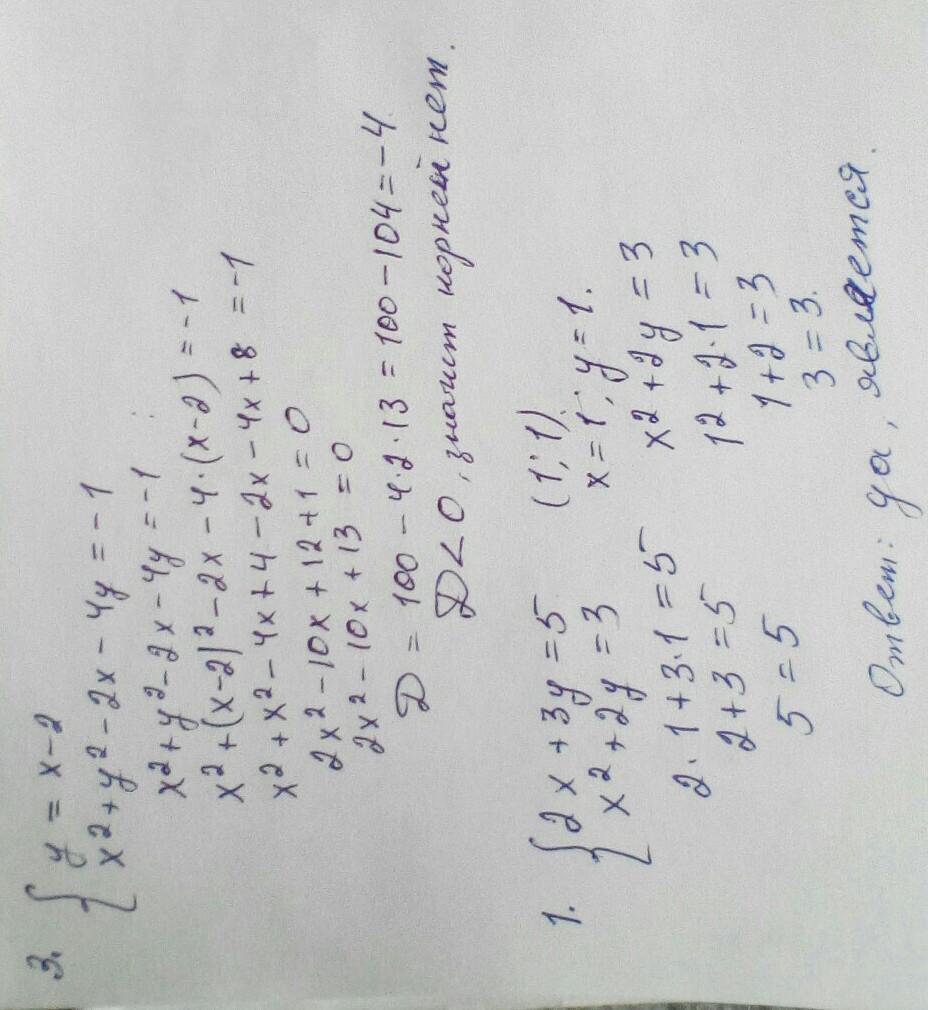 3. { y = x-2
x² + y² - 2x - 4y = -1
x² + y² - 2x - 4y = -1
x² + (x-2)² - 2x - 4·(x-2) = -1
x² + x² - 4x + 4 - 2x - 4x + 8 = -1
2x² - 10x + 12 + 1 = 0
2x² - 10x + 13 = 0
D = 100 - 4·2·13 = 100 - 104 = -4.
D < 0, значит корней нет.
1. { 2x + 3y = 5 (1; 1).
x² + 2y = 3 x = 1; y = 1.
2·1 + 3·1 = 5 x² + 2y = 3
2 + 3 = 5 1² + 2·1 = 3
5 = 5 1 + 2 = 3
3 = 3.
Ответ: да, является.